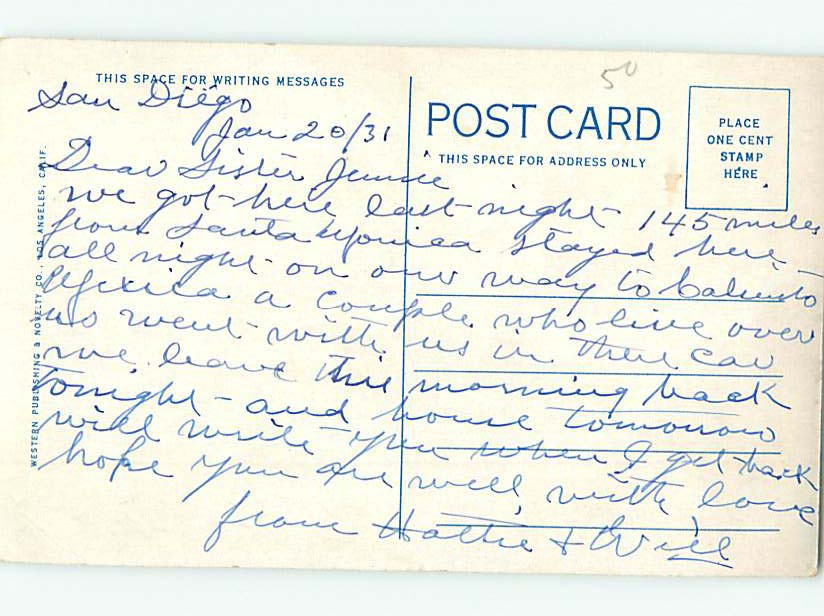 50
THIS SPACE FOR WRITING MESSAGES
POST CARD
THIS SPACE FOR ADDRESS ONLY
PLACE
ONE CENT
STAMP
HERE
WESTERN PUBLISHING & NOVELTY CO., LOS ANGELES, CALIF.
San Diego
Jan 20/31
Dear Sister Jennie
we got here last night 145 miles
from Santa Monica stayed here
all night on our way to Caliento
Mexico a couple who live over
us went with us in there car
we leave this morning back
tonight and home tomorrow
will write you when I get back
hope you are well, with love
from Hattie & Will